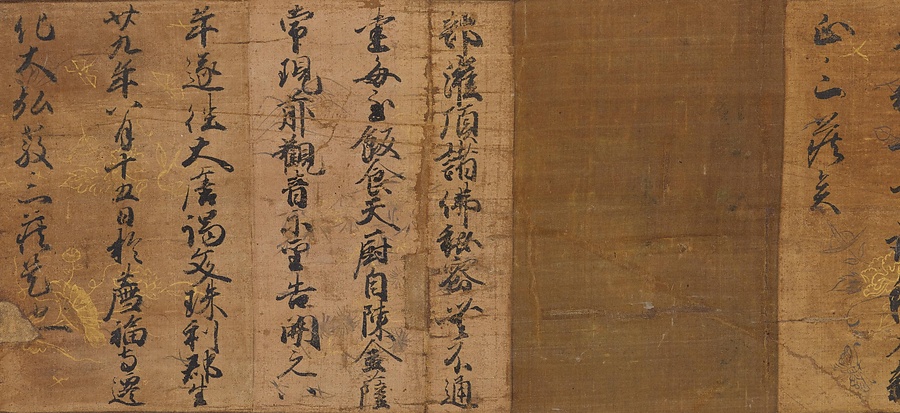 三藏矣
部灌頂諸佛秘密無不通
靈每至飯食天廚自陳金薩
常現前觀音示聖告開元八
年遂往大唐謁文殊利郡生
廿九年八月十五日於薦福寺遷
化大弘教三藏是也